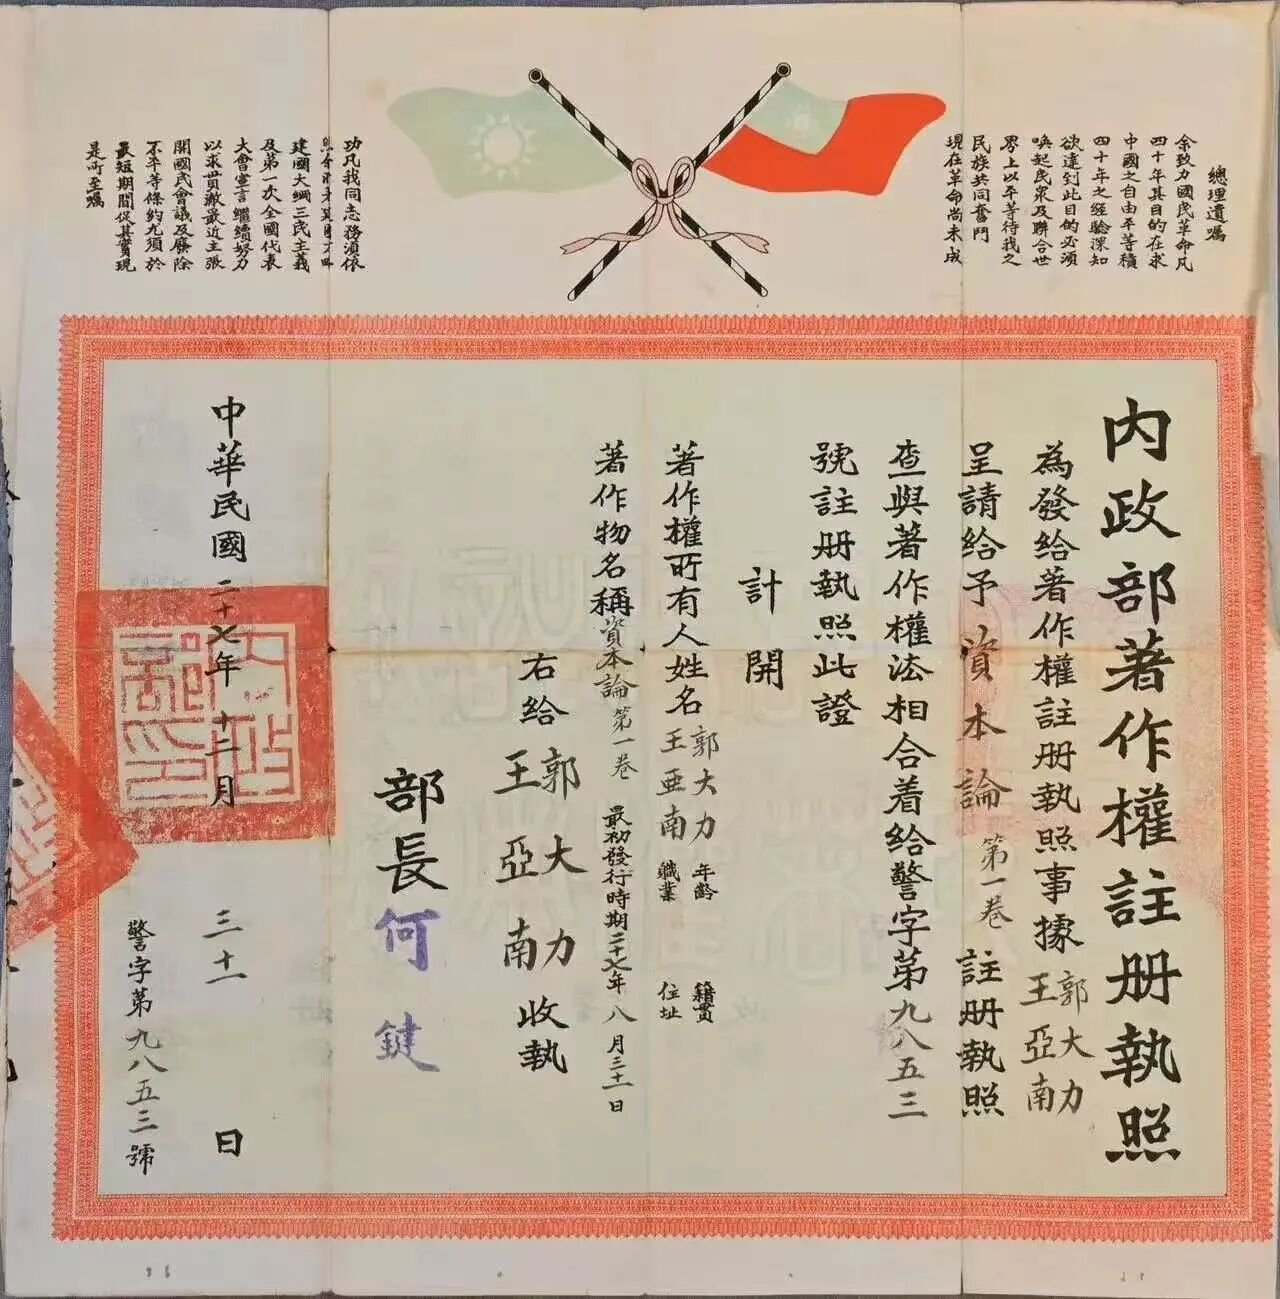 總理遺囑
余致力國民革命凡
四十年其目的在求
中國之自由平等積
四十年之經驗深知
欲達到此目的必須
喚起民眾及聯合世
界上以平等待我之
民族共同奮鬥
現在革命尚未成
功凡我同志務須依
建國大綱三民主義
及第一次全國代表
大會宣言繼續努力
以求貫澈最近主張
開國民會議及廢除
不平等條約尤須於
最短期間促其實現
是所至囑
內政部著作權註册執照
為發給著作權註册執照事據郭大力王亞南
呈請給予資本論第一卷註册執照
查與著作權法相合着給警字第九八五三
號註册執照此證
計開
著作權所有人姓名郭大力王亞南 年齡職業 籍貫住址
著作物名稱資本論第一卷 最初發行時期二十七年八月三十一日
右給郭大力王亞南收執
部長何鍵
中華民國二十七年十二月三十一日
警字第九八五三號
內政部印